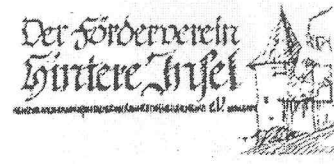 Der Förderverein
Hintere Insel
e.V.